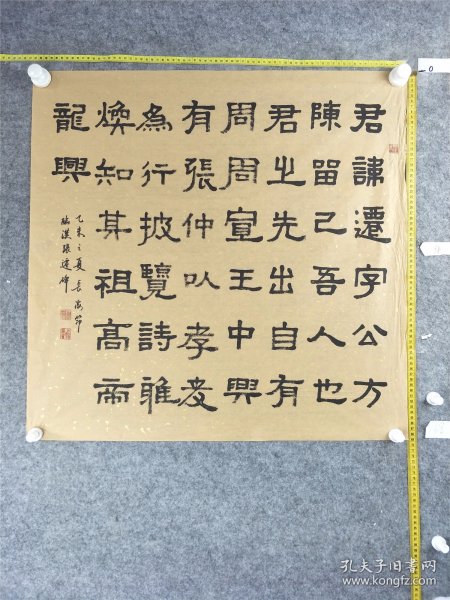 君諱遷字公方
陳留己吾人也
君之先出自有
周周宣王中興
有張仲以孝友
為行披覽詩雅
煥知其祖高帝
龍興
乙未之夏長
孔夫子旧书网
www.kongfz.com